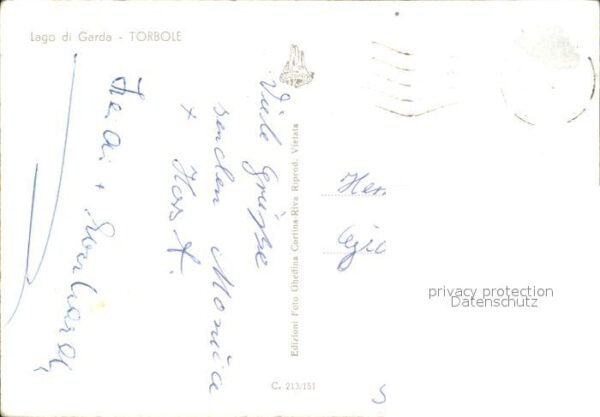 Lago di Garda - TORBOLE
Viele Grüsse
senden Monica
+ Horst.
Heidi + Eberhard
Edizioni Foto Ghedina Cortina-Riva Riprod. Vietata
C. 213/151
Her
privacy protection
Datenschutz